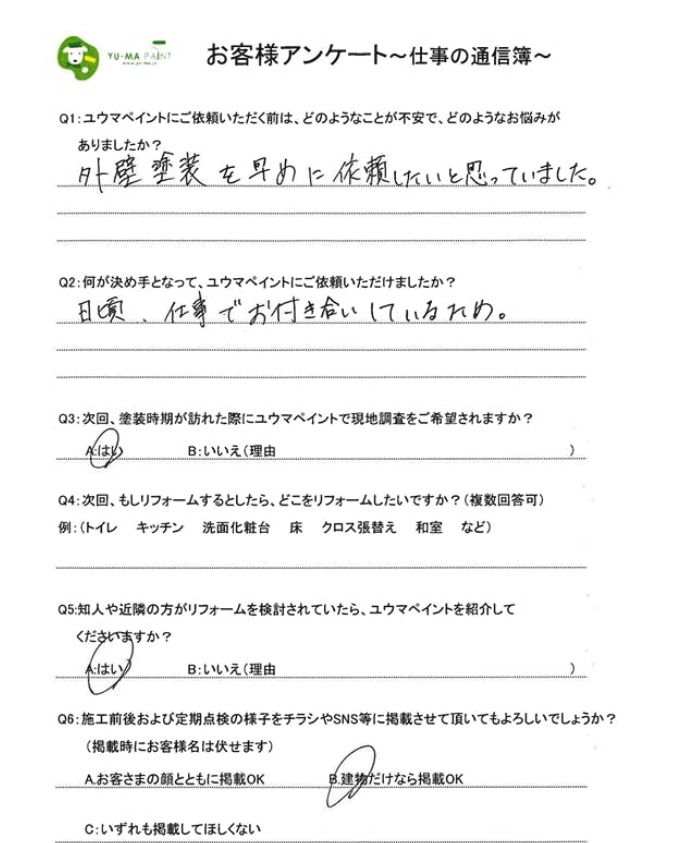 YU-MA PAINT
お客様アンケート～仕事の通信簿～
Q1：ユウマペイントにご依頼いただく前は、どのようなことが不安で、どのようなお悩みが
ありましたか？
外壁塗装を早めに依頼したいと思っていました。
Q2：何が決め手となって、ユウマペイントにご依頼いただけましたか？
日頃、仕事でお付き合いしているため。
Q3：次回、塗装時期が訪れた際にユウマペイントで現地調査をご希望されますか？
A:はい B：いいえ（理由 ）
Q4：次回、もしリフォームするとしたら、どこをリフォームしたいですか？（複数回答可）
例：（トイレ キッチン 洗面化粧台 床 クロス張替え 和室 など）
Q5:知人や近隣の方がリフォームを検討されていたら、ユウマペイントを紹介して
くださいますか？
A:はい B：いいえ（理由 ）
Q6：施工前後および定期点検の様子をチラシやSNS等に掲載させて頂いてもよろしいでしょうか？
（掲載時にお客様名は伏せます）
A.お客さまの顔とともに掲載OK B.建物だけなら掲載OK
C：いずれも掲載してほしくない